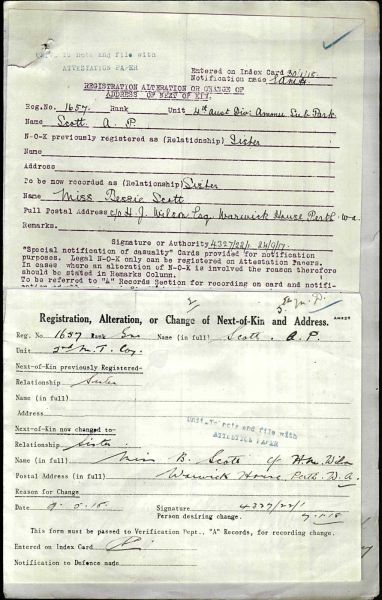 Unit. To note and file with
ATTESTATION PAPER
Entered on Index Card
Notification made
REGISTRATION ALTERATION OR CHANGE OF
ADDRESS OF NEXT OF KIN.
Reg.No. 1657 Rank Unit 4th Aust Div. Ammn Sub Park
Name Scott A. P.
N-O-K previously registered as (Relationship) Sister
Name
Address
To be now recorded as (Relationship) Sister
Name Miss Bessie Scott
Full Postal Address c/o H.J. Wilson Esq. Warwick House Perth W-a
Remarks.
Signature or Authority 4327/22/1. 24/9/17.
"Special notification of casualty" Cards provided for notification
purposes. Legal N-O-K only can be registered on Attestation Papers.
In cases where an alteration of N-O-K is involved the reason therefore
should be stated in Remarks Column.
To be referred to "A" Records Section for recording on card and notifi-
Registration, Alteration, or Change of Next-of-Kin and Address.
Reg. No. 1657 Rank Name (in full) Scott. A. P.
Unit: 3rd M. T. Coy.
Next-of-Kin previously Registered-
Relationship Sister
Name (in full)
Address
Unit-To note and file with
ATTESTATION PAPER
Next-of-Kin now changed to-
Relationship Sister
Name (in full) Miss B. Scott c/o
Postal Address (in full) Warwick House, Perth. W. A.
Reason for Change
Date Signature 4327/22/1
Person desiring change.
This form must be passed to Verification Dept., "A" Records, for recording change.
Entered on Index Card
Notification to Defence made